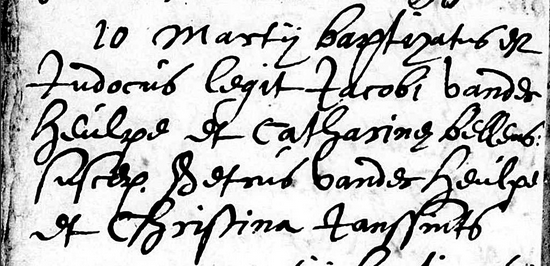 10 Martij baptizatus est
Judocus legit Jacobi vander
Heulpe et Catharinę bellens.
suscep. Petrus vander Heulpe
et Christina Janssints